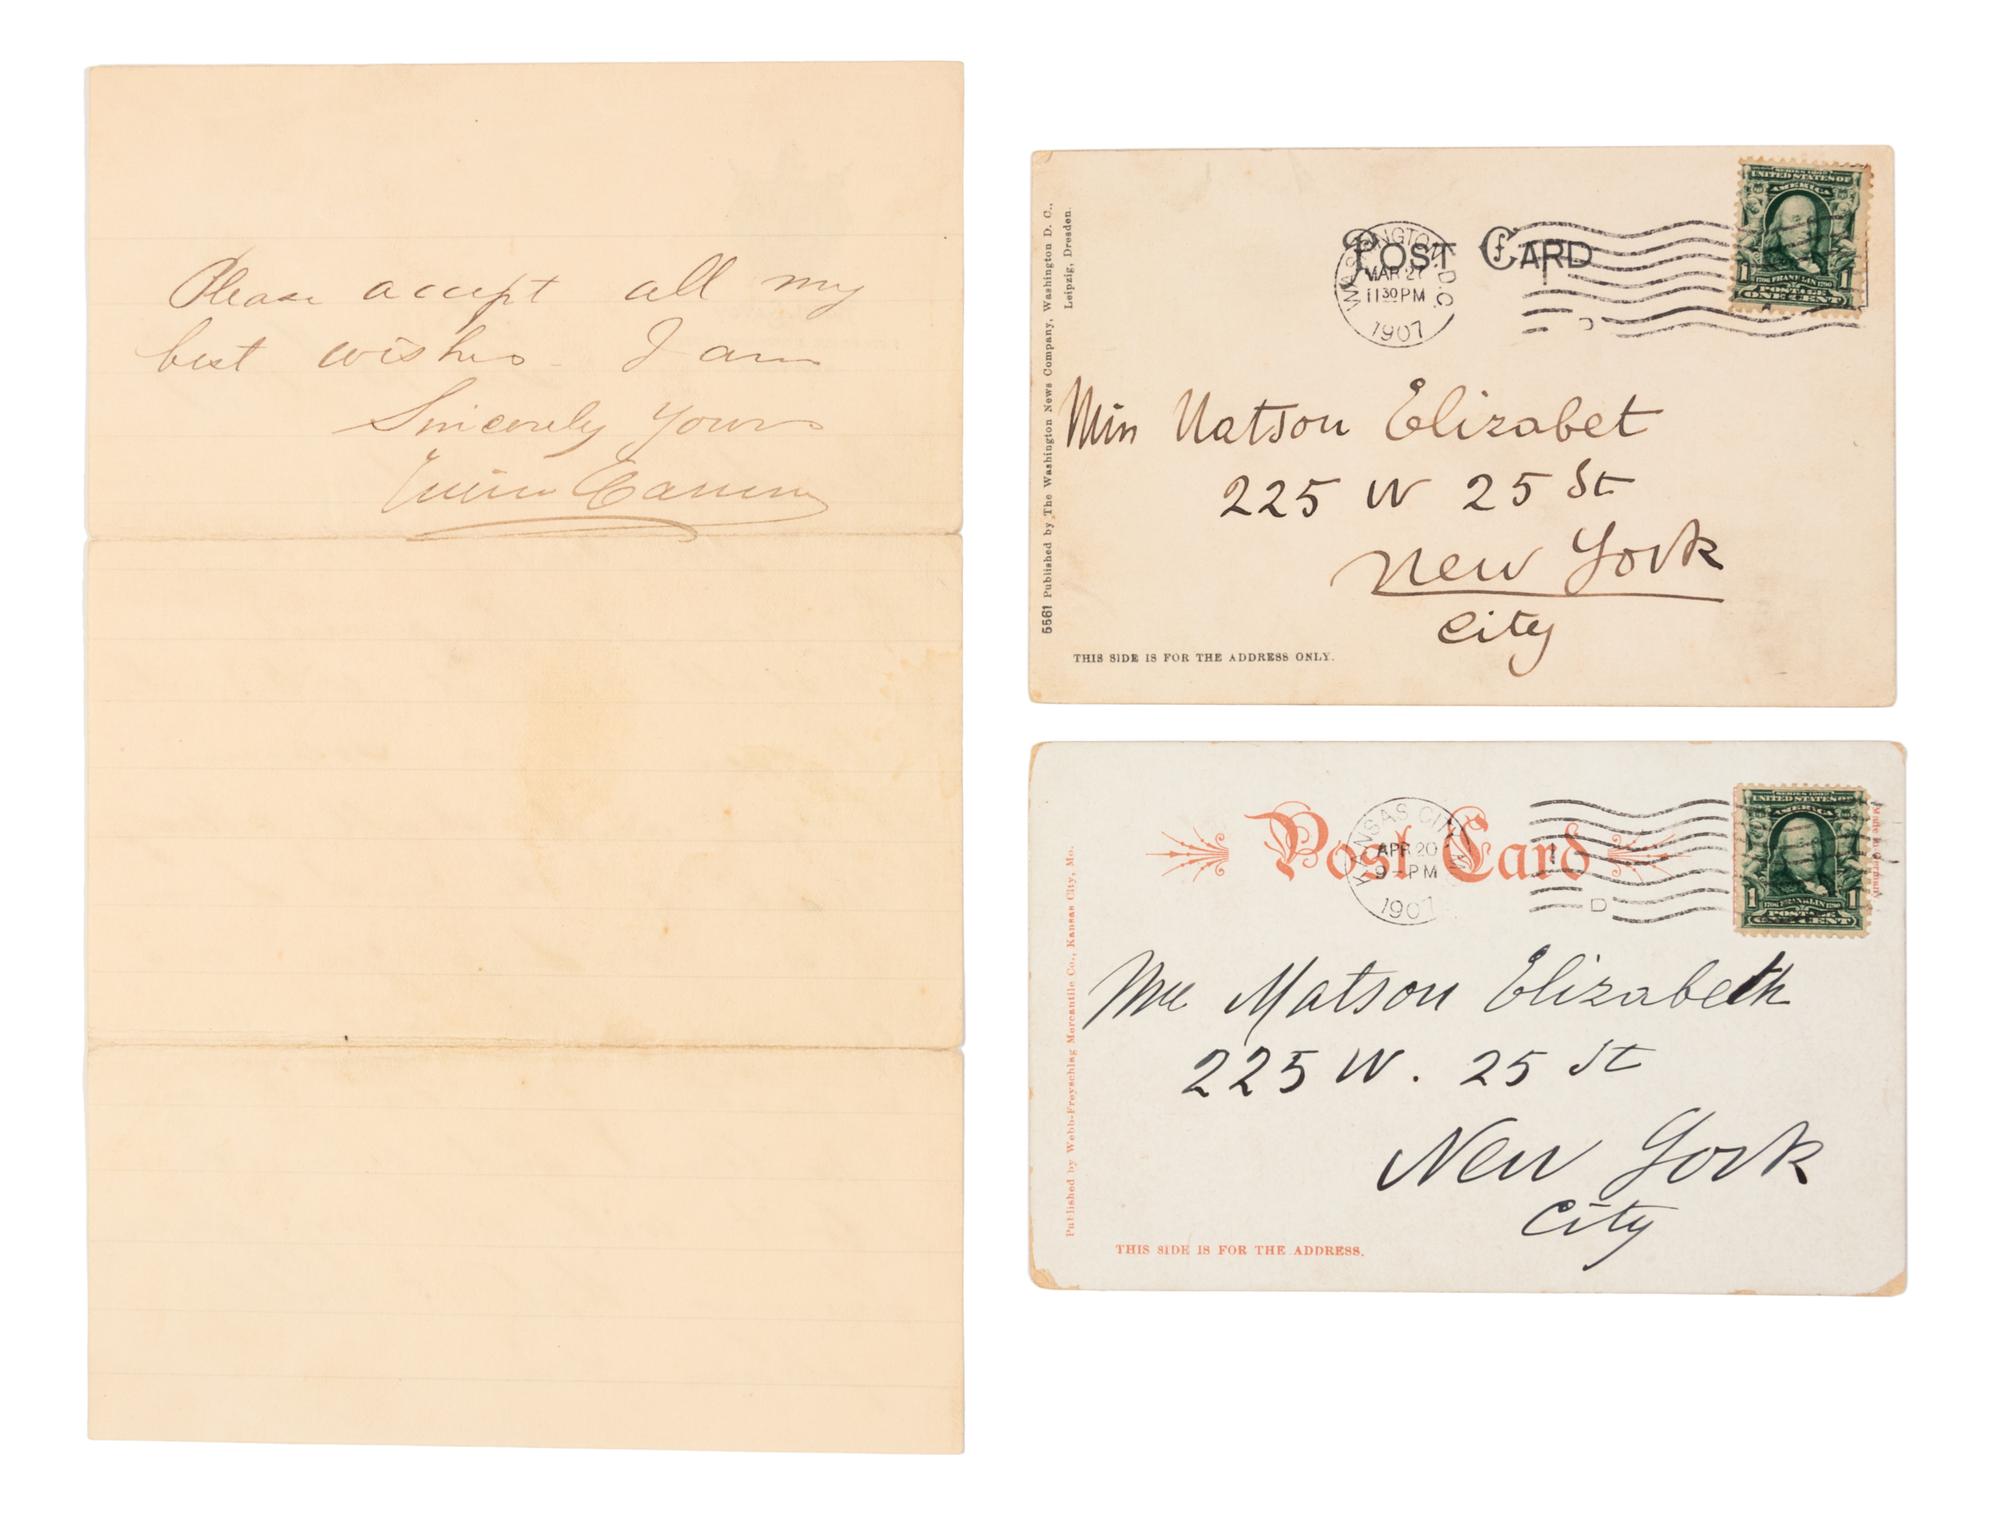 Please accept all my
best wishes - I am
Sincerely Yours
POST CARD
WASHINGTON, D.C.
MAR 27
11 30 PM
1907
SERIES 1902
UNITED STATES OF
AMERICA
1 FRANKLIN 1
POSTAGE
ONE CENT
Miss Matson Elizabet
225 W 25 St
New York
City
5561 Published by The Washington News Company, Washington D. C.,
Leipzig, Dresden.
THIS SIDE IS FOR THE ADDRESS ONLY.
Post Card
KANSAS CITY
APR 20
9 - PM
1907
D
UNITED STATES OF
AMERICA
1 FRANKLIN 1
POSTAGE
ONE CENT
Made in Germany
Matson Elizabeth
225 W. 25 St
New York
City
Published by Webb-Freyschlag Mercantile Co., Kansas City, Mo.
THIS SIDE IS FOR THE ADDRESS.